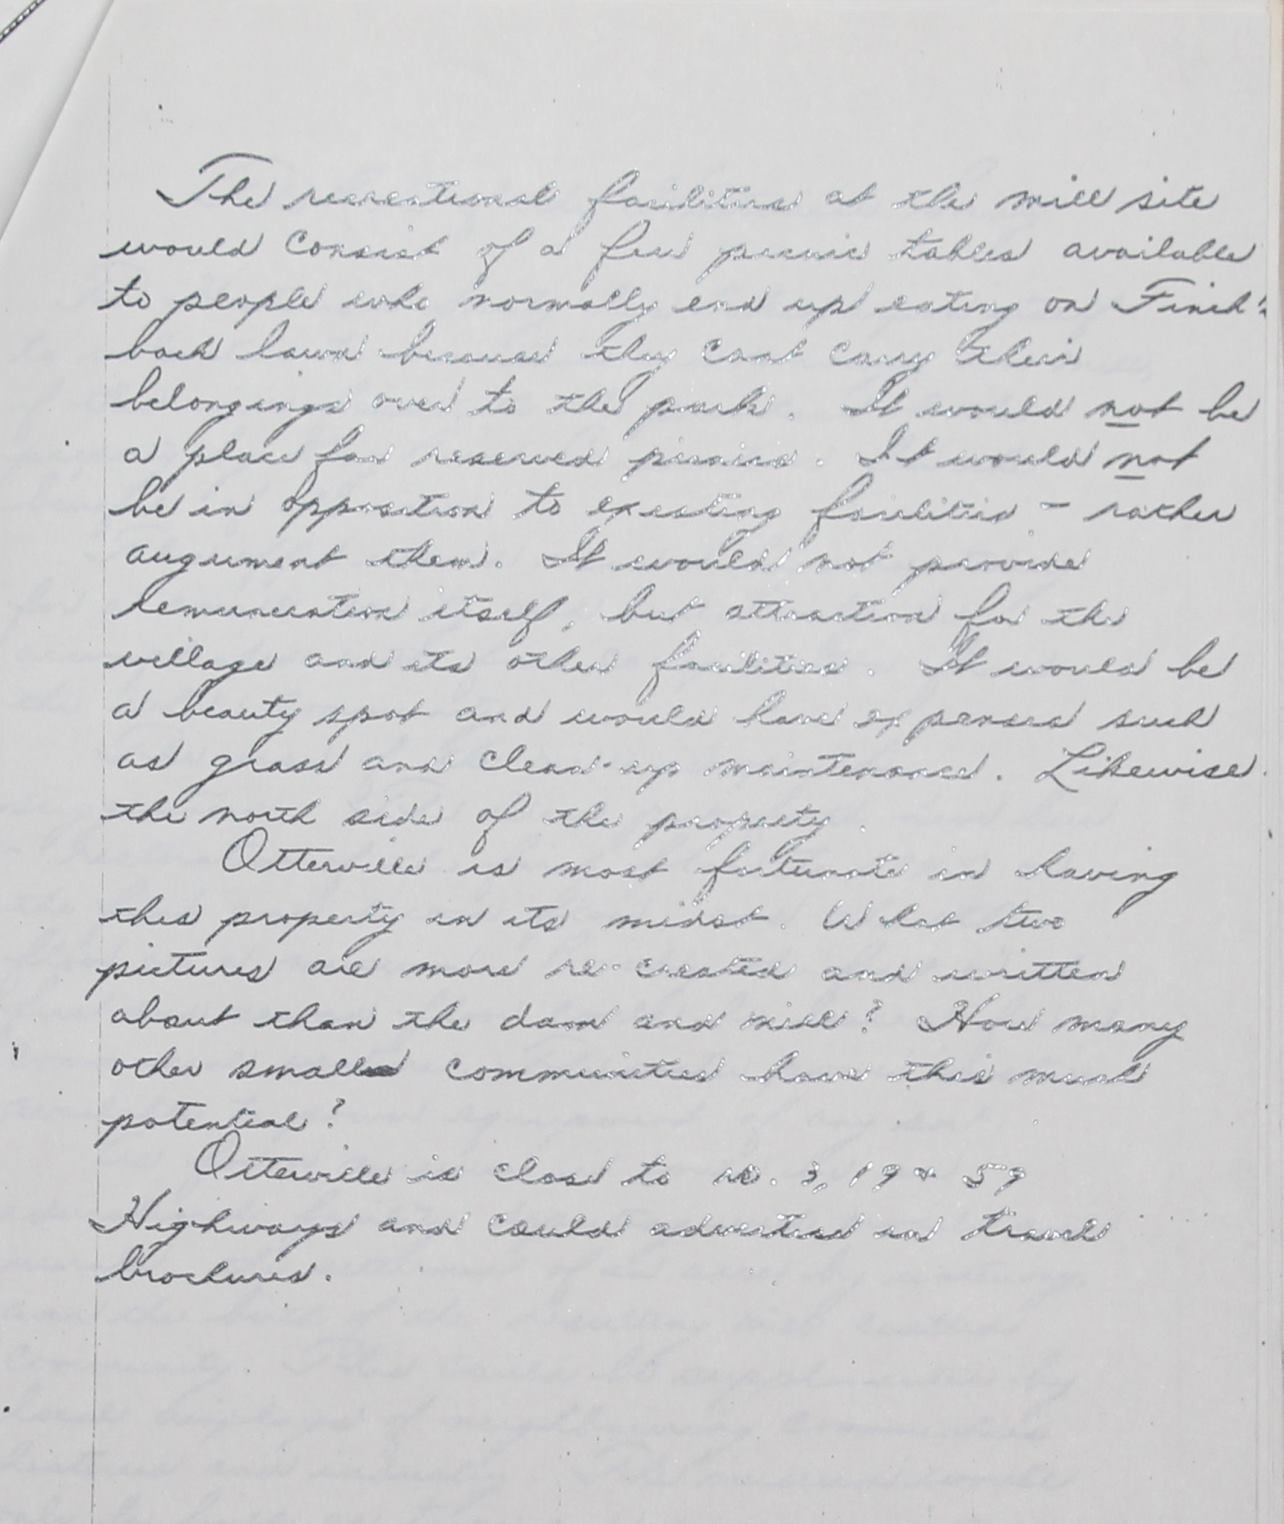 The recreational facilities at the mill site
would consist of a few picnic tables available
to people who normally end up eating on Finch's
back lawn because they cant carry their
belongings over to the park. It would not be
a place for reserved picnics. It would not
be in opposition to existing facilities - rather
augument them. It would not provide
remuneration itself, but attraction for the
village and its other facilities. It would be
a beauty spot and would have expenses such
as grass and clean-up maintenance. Likewise
the north side of the property.
Otterville is most fortunate in having
this property in its midst. What two
pictures are more re-created and written
about than the dam and mill? How many
other small communities have this much
potential?
Otterville is close to no. 3, 19 & 59
Highways and could advertise in travel
brochures.